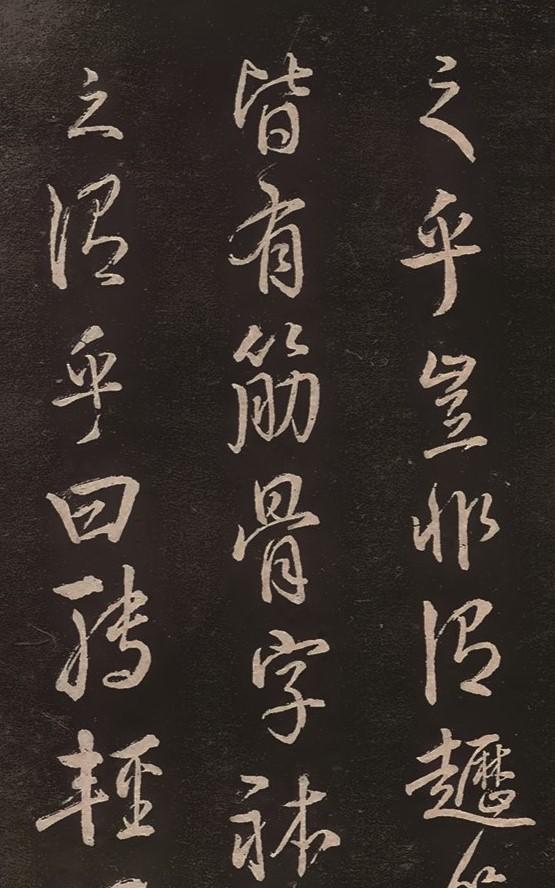 之乎豈非謂趯
皆有筋骨字體
之謂乎曰轉輕